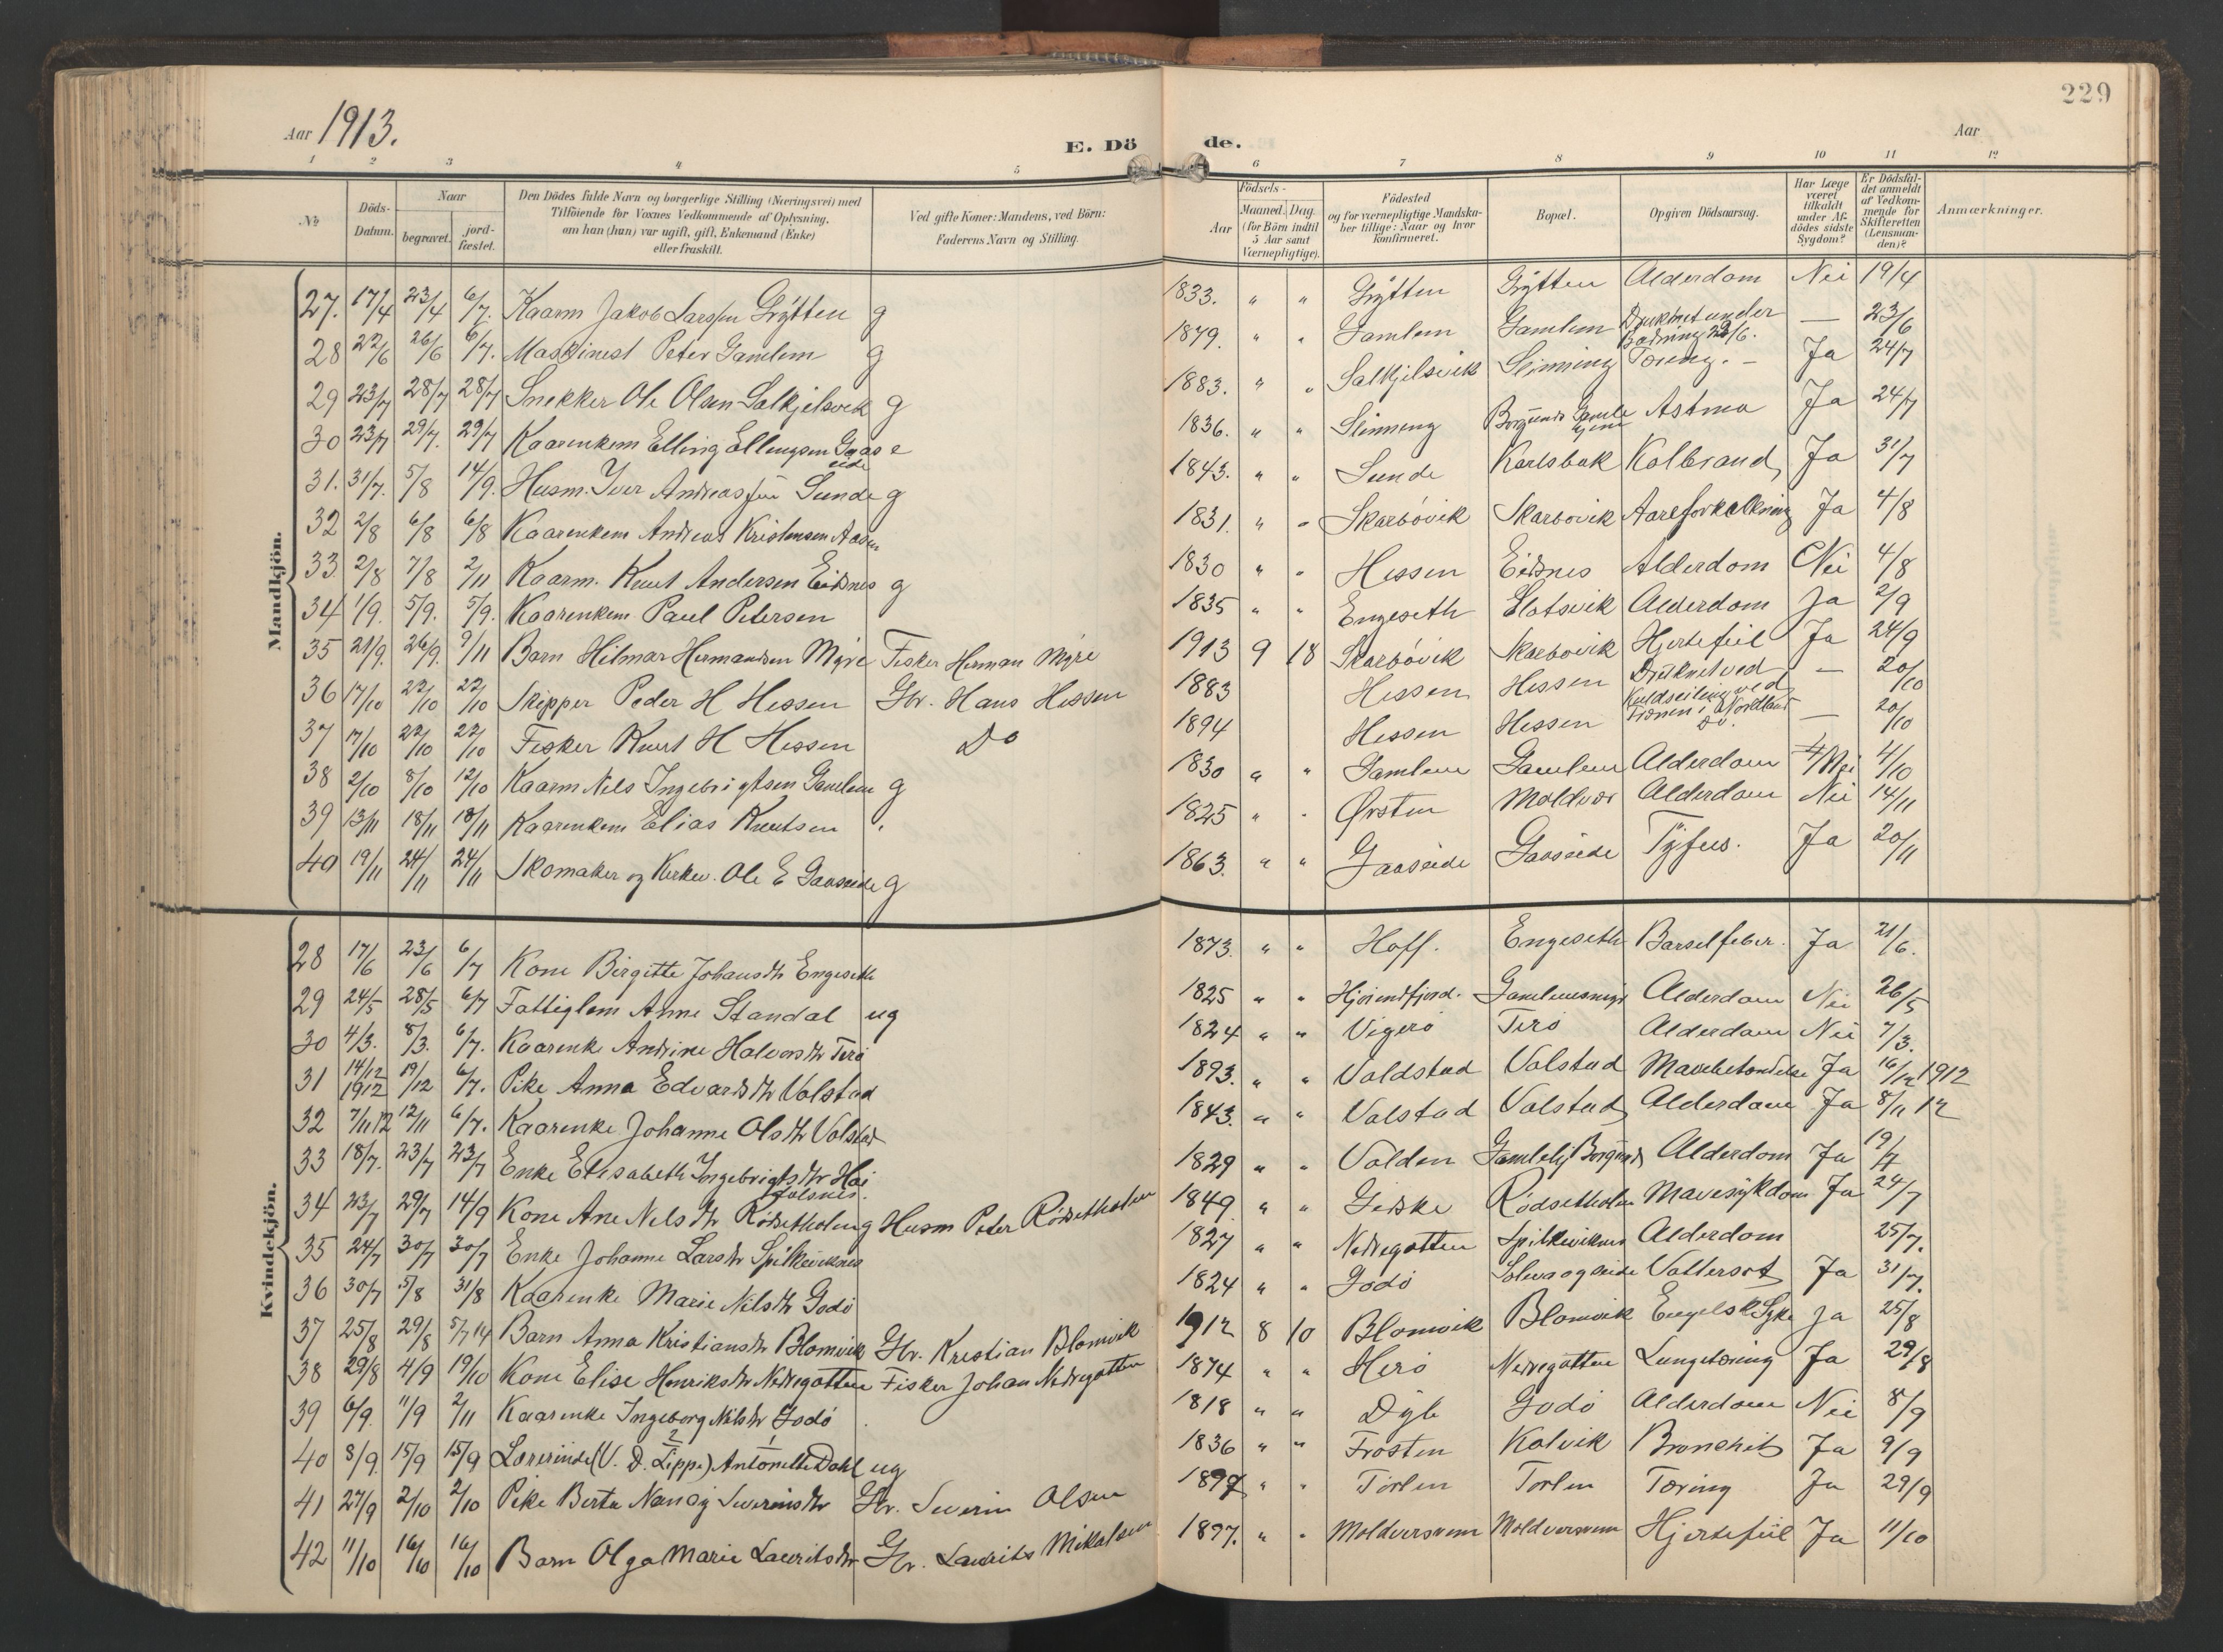 229
Aar 1913.
E. Dö de.
Aar
1 2 3 4 5 6 7 8 9 10 11 12
No
Döds-Datum.
Naar
begravet. jord-fæstet.
Den Dödes fulde Navn og borgerlige Stilling (Næringsvei) med Tilföiende for Voxnes Vedkommende af Oplysning, om han (hun) var ugift, gift, Enkemand (Enke) eller fraskilt.
Ved gifte Koner: Mandens, ved Börn: Faderens Navn og Stilling.
Födsels-
Aar Maaned. Dag. (for Börn indtil 5 Aar samt Værnepligtige).
Födested og for værnepligtige Mandskaber tillige: Naar og hvor konfirmeret.
Bopæl.
Opgiven Dödsaarsag.
Har Læge været tilkaldt under Afdödes sidste Sygdom?
Er Dödsfaldet anmeldt af Vedkommende for Skifteretten (Lensmanden)?
Anmærkninger.
Mandkjön.
27. 17/4 23/4 6/7. Kaarm Jakob Larssen Grytten g 1833. " " Grytten Grytten Alderdom Nei 19/4
28 22/6 26/6 6/7. Maskinist Peter Gamlem g 1879. " " Gamlem Gamlem Druknet under Badning 22/6. — 23/6
29 23/7 28/7 28/7 Snekker Ole Olsen Salkjelsvik g 1883. " " Salkjelsvik Slinning Tæring. – Ja 24/7
30 23/7 29/7. 29/7 Kaarenkem Elling Ellingsen Gaaseide e 1836. " " Slinning Borgund Gamlehjem Astma Ja 24/7
31. 31/7. 5/8 14/9. Husm. Iver Andreassen Sunde g 1843. " " Sunde Karlsbak Kolbrand Ja 31/7
32 2/8 6/8 6/8 Kaarenkem Andreas Kristensen Aasen 1831. " " Skarbövik Skarbövik Aareforkalkning Ja 4/8
33 2/8 7/8 2/11 Kaarm. Knut Andersen Eidsnes g 1830 " " Hessen Eidsnes Alderdom Nei 4/8
34 1/9. 5/9. 5/9. Kaarenkem Paul Petersen 1835 " " Engeseth Slotsvik Alderdom Ja 2/9
35 21/9. 26/9. 9/11 Barn Hilmar Hermandsen Myre Fisker Herman Myre 1913 9 18 Skarbövik Skarbövik Hjertefeil Ja 24/9
36 17/10 22/10 22/10 Skipper Peder H Hessen Gbr. Hans Hessen 1883 Hessen Hessen Druknet ved Kuldseiling ved i Nordland — 20/10
37 17/10 22/10 22/10 Fisker Knut H Hessen Do 1894 Hessen Hessen Do. — 20/10
38 2/10 8/10 12/10 Kaarm Nils Ingebrigtsen Gamlem g 1830 " " Gamlem Gamlem Alderdom Nei 4/10
39 13/11 18/11 18/11 Kaarenkem Elias Knutsen " 1825 " " Ørsten Moldvær Alderdom Nei 14/11
40 19/11 24/11 24/11 Skomaker og Kirkev. Ole E Gaaseide g 1863. " " Gaaseide Gaaseide Tyfus. Ja 20/11
Kvindekjön.
28 17/6 23/6 6/7 Kone Birgitte Johansdtr Engeseth 1873. " " Hoff. Engeseth Barselfeber. Ja 21/6.
29 24/5 28/5 6/7 Fattiglem Anne Standal ug 1825 " " Hjörundfjord. Alderdom Nei 26/5
30 4/3. 8/3. 6/7. Kaarenke Andrine Halvorsdtr Terö 1824 " " Vigerö Terö Alderdom Nei 7/3.
31 14/12 1912 19/12 6/7. Pike Anna Edvardsdtr Valstad 1893. " " Valdstad Valstad Mavebetændelse Ja 16/12 1912
32 7/11 12 12/11 6/7. Kaarenke Johanne Olsdtr Valstad 1843. " " Valstad Valstad Alderdom Ja 8/11 12
33 18/7. 23/7 23/7 Enke Elisabeth Ingebrigtsdtr 1829 " " Volden Gamlehj Borgund Alderdom Ja 19/7
34 23/7 29/7 14/9 Kone Ane Nilsdtr Rödsetholm g Husm Peter Rödsetholm 1849 " " Giske Rödsetholm Mavesykdom Ja 24/7
35 24/7 30/7 30/7 Enke Johanne Larsdtr Spilkeviknes 1827 " " Nedregotten Spilkeviknes Alderdom 25/7.
36 30/7 5/8 31/8 Kaarenke Marie Nilsdtr Godö 1824 " " Godö Solevaagseide Vattersot Ja 31/7.
37 25/8 29/8 5/7 14 Barn Anna Kristiansdtr Blomvik Gbr. Kristian Blomvik 1912 8 10 Blomvik Blomvik Engelsk Syke Ja 25/8
38 29/8 4/9 19/10 Kone Elise Henriksdtr Nedregotten Fisker Johan Nedregotten 1874 " " Herö Nedregotten Lungetæring Ja 29/8
39 6/9. 11/9 2/11 Kaarenke Ingeborg Nilsdtr Godö 1818 " " Dyb Godö Alderdom Nei 8/9
40 8/9. 15/9 15/9 Lærerinde (V. D. Lippe) Antonette Dahl ug 1836 " " Frosten Kalvik Bronchit Ja 9/9
41 27/9 2/10 2/10 Pike Berta Nancy Severinsdtr Gbr. Severin Olsen 1897 " " Torlen Torlen Tæring Ja 29/9
42 11/10 16/10 16/10 Barn Olga Marie Lauritsdtr Gbr. Laurits Mikalsen 1897. " " Moldversvem Moldversvem Hjertefeil Ja 11/10